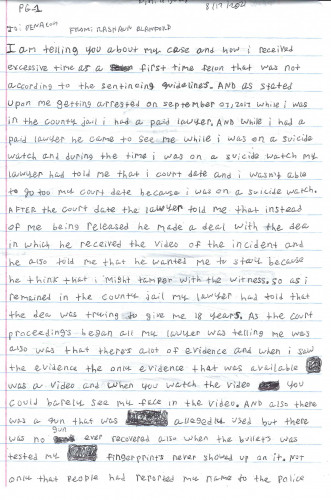 PG-1
To: PENACON FROM: RASHAWN
I am telling you about my case and how i received
excessive time as a first time felon that was not
according to the sentencing guidelines. AND as stated
upon me getting arrested on september 07, 2017 while i was
in the county jail i had a paid lawyer. AND while i had a
paid lawyer he came to see me while i was on a suicide
watch and during the time i was on a suicide watch my
lawyer had told me that i court date and i wasn't able
to go too my court date because i was on a suicide watch.
AFTER the court date the lawyer told me that instead
of me being released he made a deal with the dea
in which he received the video of the incident and
he also told me that he wanted me to stay because
he think that i might tamper with the witness. so as i
remained in the county jail my lawyer had told that
the dea was trying to give me 18 years. As the court
proceedings began all my lawyer was telling me was
also was that there's alot of evidence and when i saw
the evidence the only evidence that was available
was a video and when you watch the video you
could barely see my face in the video. AND also there
was a gun that was allegedly used but there
was no gun ever recovered also when the bullets was
tested my fingerprints never showed up on it. Not
only that people had reported my name to the police